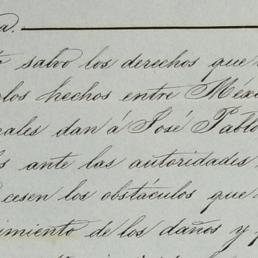 a.
salvo los derechos que
los hechos entre Méxi
nales dan á José Pablo
s ante las autoridades
cesen los obstáculos que
imiento de los daños y p